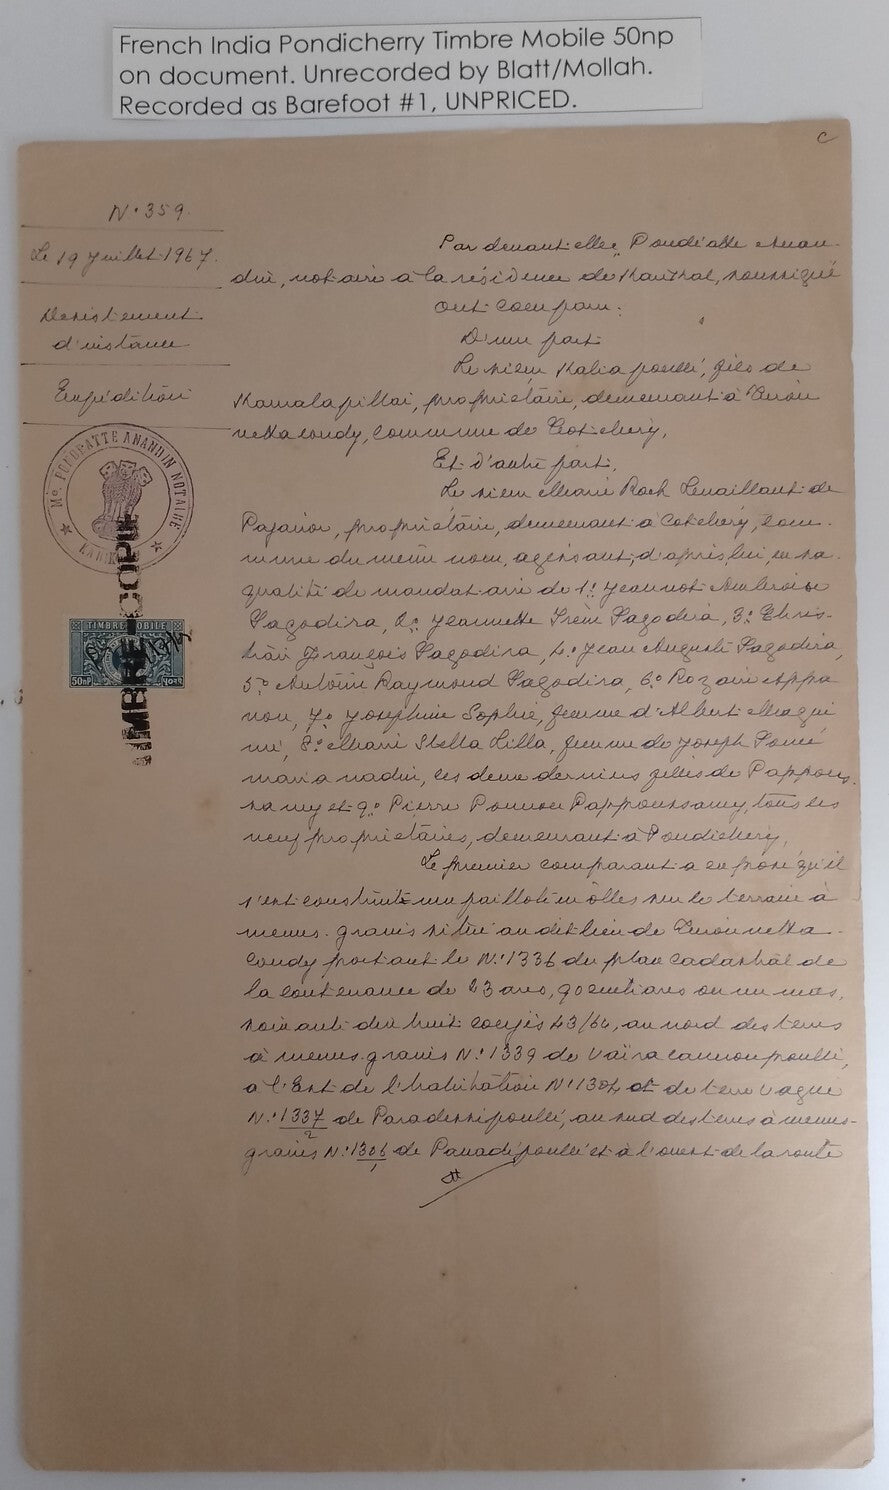 French India Pondicherry Timbre Mobile 50np
on document. Unrecorded by Blatt/Mollah.
Recorded as Barefoot #1, UNPRICED.
C
N.º 359.
Le 19 Juillet 1967.
Désistement
d'instance
Expédition
Me. PONDEATTE ANANDIN NOTAIRE
TIMBRE MOBILE
50nP
TIMBRE-COPIE
Par devant
din, notaire à la résidence de Karikal, soussigné
Ont comparu:
D'une part
Le sieur Kaliapoullé, fils de
Kamalapillai, propriétaire, demeurant à
coudy, commune de Cotchéry,
Et d'autre part,
Le sieur Marie Roch Levaillant de
propriétaire, demeurant à Cotchéry, com-
mune du même nom, agissant, d'après lui, en sa
qualité de mandataire de 1º. Jeannot Ambroise
Pagodira, 2º. Jeannette Irène Pagodira, 3º. Chris-
tian François Pagodira, 4º. Jean Auguste Pagodira,
5º Antoine Raymond Pagodira, 6º Rozaire Appa
vou, 7º Josephine Sophie, femme d'Albert
8º. Marie Stella Lilla, femme de Joseph
les deux dernières filles de Pappou
samy et 9º Pierre Ponnou Pappoussamy, tous les
neuf propriétaires, demeurant à Pondichéry,
Le premier comparant a exposé qu'il
s'est construit une paillote en olles sur le terrain à
menus-grains situé au dit lieu de
coudy portant le N.º 1336 du plan cadastral de
la contenance de 23 ares, 90 centiares ou un mas,
soixante dix huit 43/64, au nord des terres
à menus-grains N.º 1339 de
à l'Est de l'habitation N.º 1304 et de terre vague
N.º 1337/2 de Paradessipoullé, au sud des terres à menus-
grains N.º 1306/1 de et à l'ouest de la route